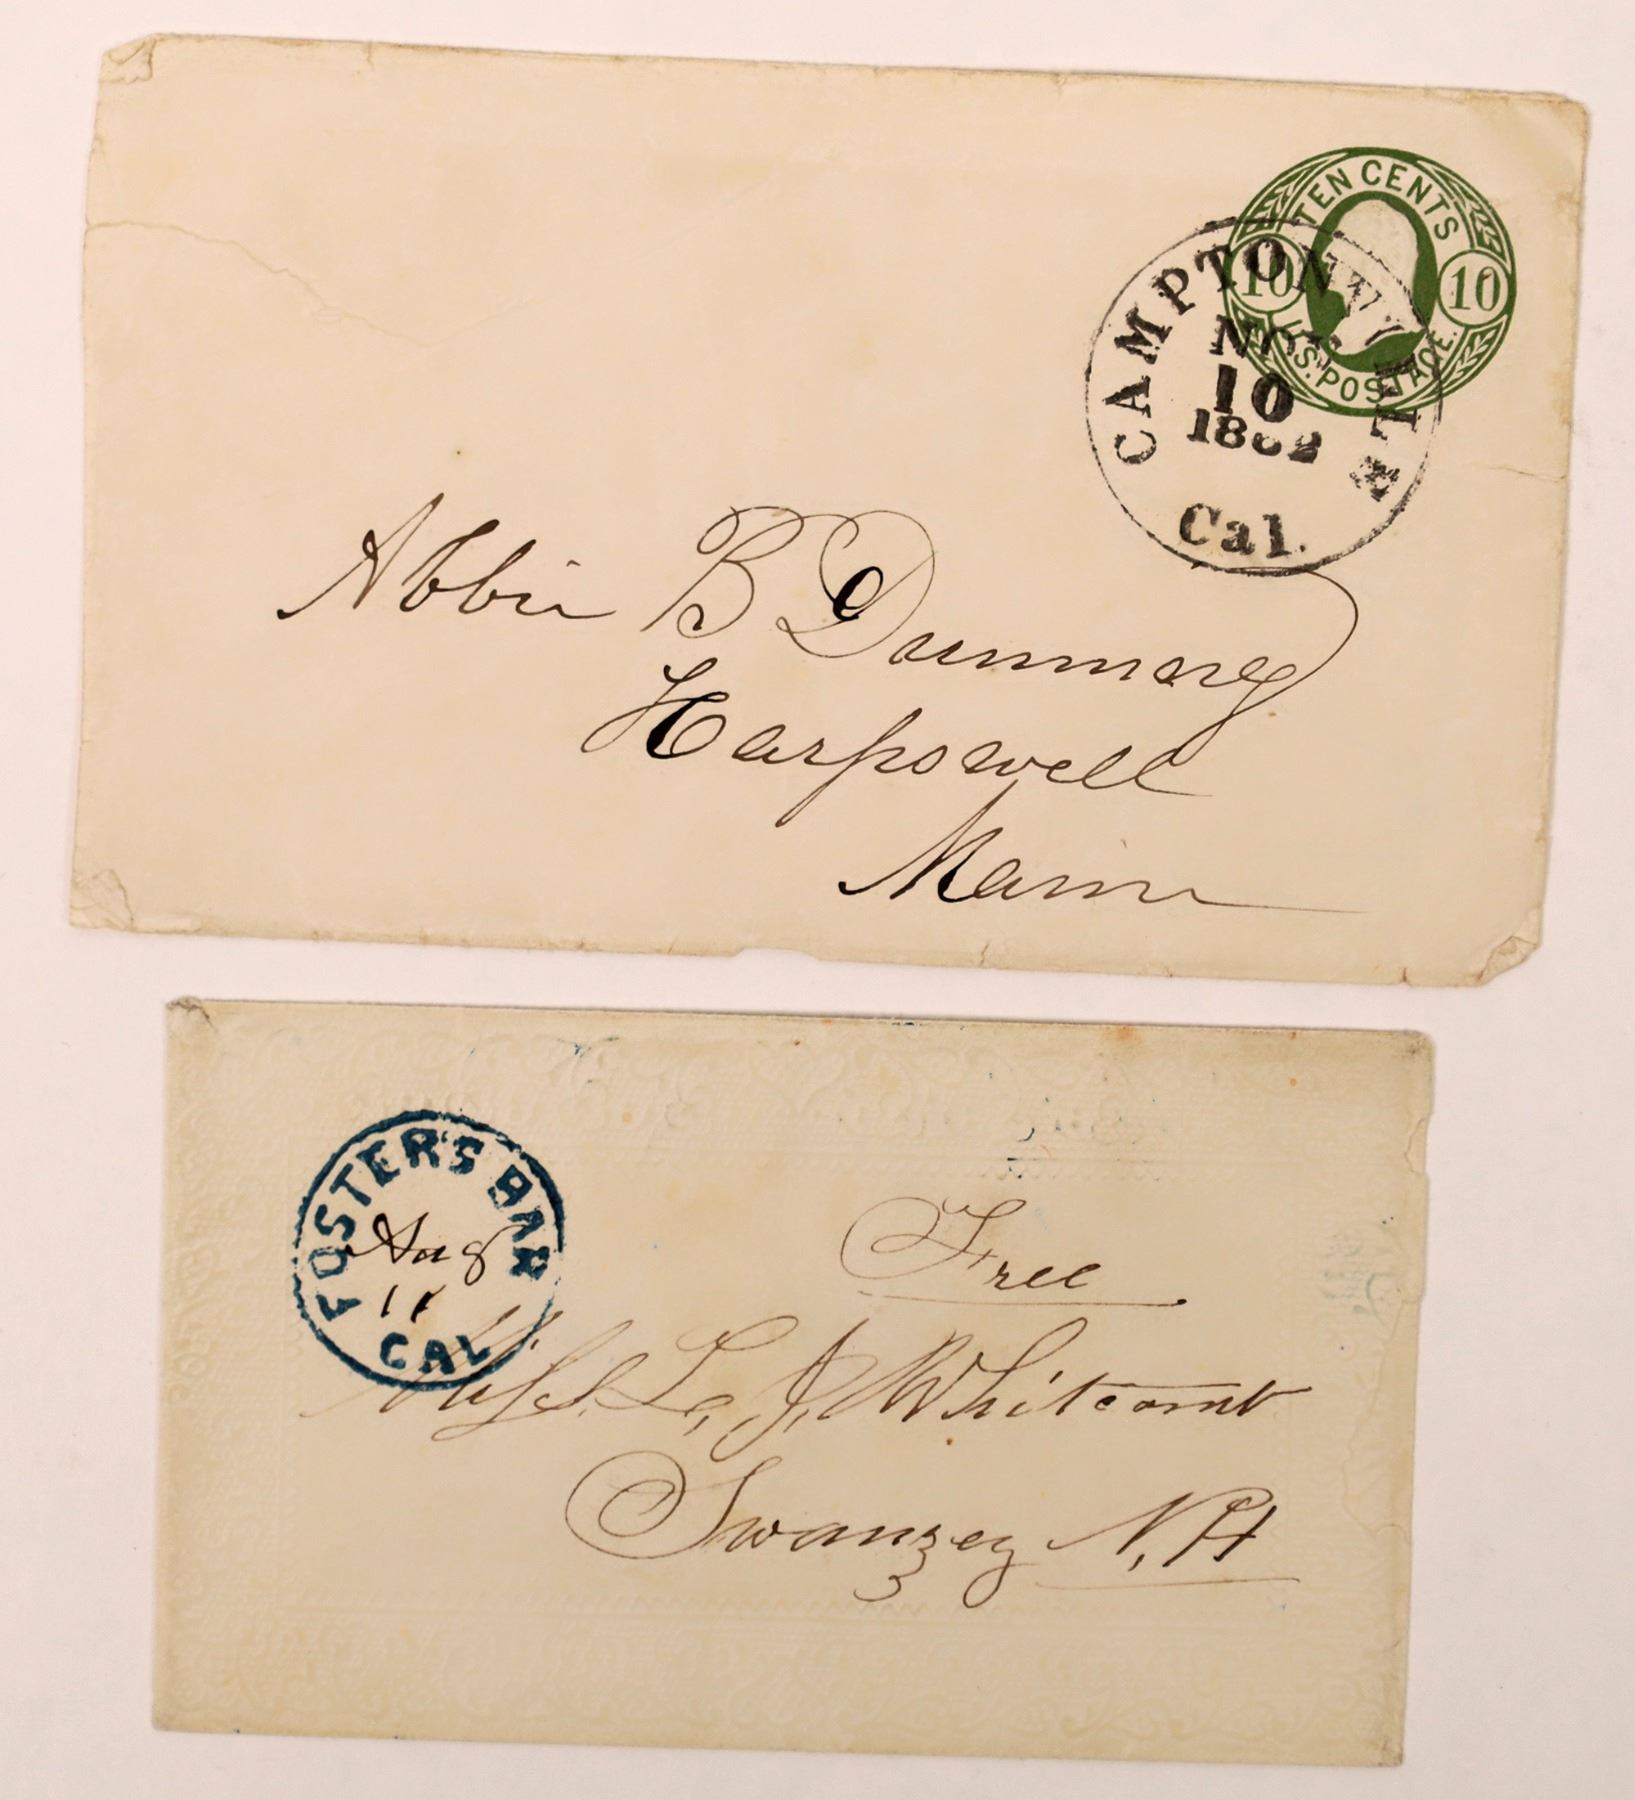 TEN CENTS
10 10
U.S. POSTAGE.
CAMPTONVILLE
NOV
10
1862
Cal.
Abbie B Dunning
Harpswell
Maine
FOSTER'S BAR
Aug
11
CAL
Free
Miss. L, J, Whitcomb
Swanzey N, H